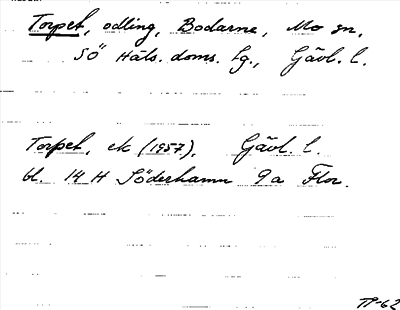 Torpet, odling, Bodarne, Mo sn,
SÖ Häls. doms. fg., Gävl. l.
Torpet, ek (1957), Gävl. l.
bl. 14 H Söderhamn 9 a Flor.
TP-62